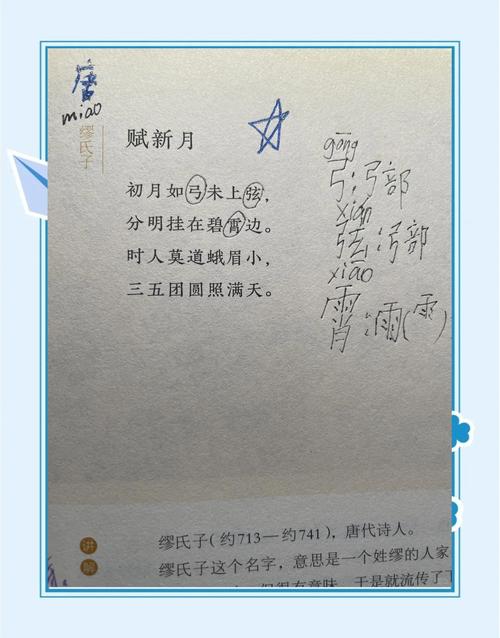 唐
miao
缪氏子
赋新月
初月如弓未上弦，
分明挂在碧霄边。
时人莫道蛾眉小，
三五团圆照满天。
gōng
弓:弓部
xián
弦:弓部
xiāo
霄:雨(⻗)
讲解
缪氏子(约713—约741)，唐代诗人。
缪氏子这个名字，意思是一个姓缪的人家
但很有意味，于是就流传了下